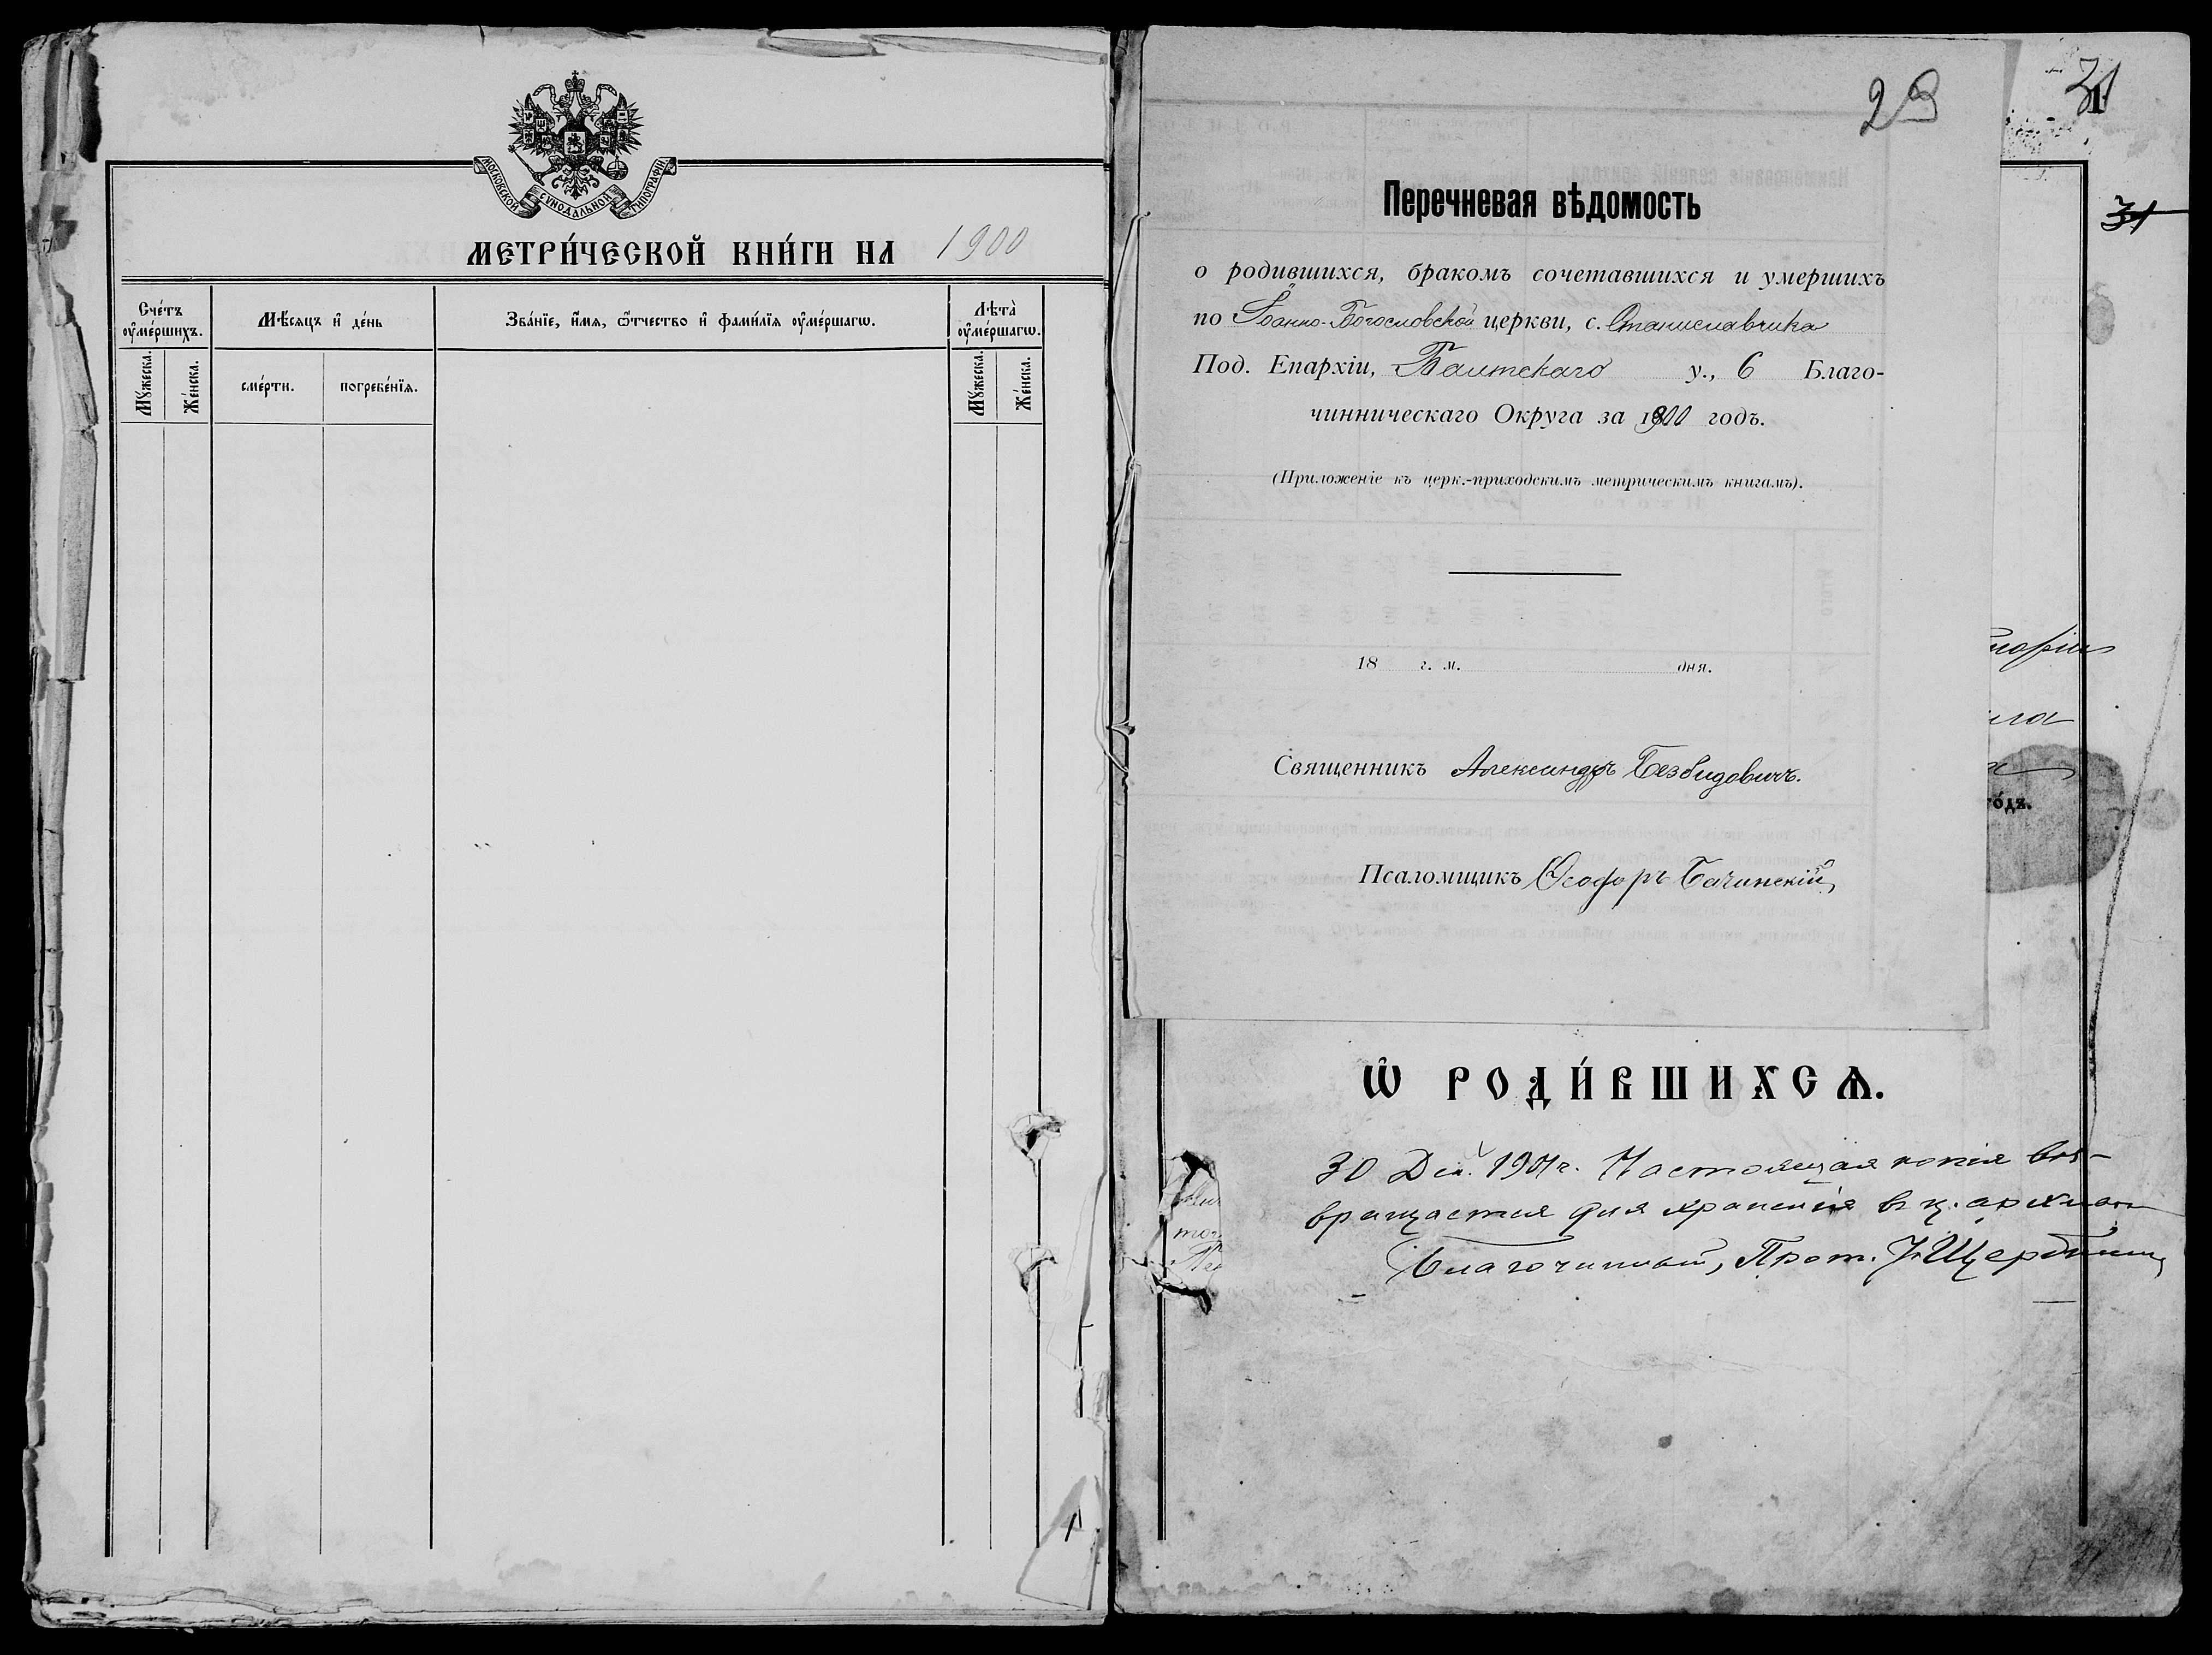 МОСКОВСКОЙ СѴНОДАЛЬНОЙ ТИПОГРАФІИ
МЕТРИ́ЧЕСКОЙ КНИ́ГИ НА 1900
Сче́тъ ᲂу҆ме́ршихъ.
Мѣ́сяцъ и҆ де́нь
Зва́нїе, и҆́мя, ѻ҆́тчество и҆ фами́лїя ᲂу҆ме́ршагѡ.
Лѣта̀ ᲂу҆ме́ршагѡ.
Мꙋ́жеска.
Же́нска.
сме́рти.
погребе́нїя.
Мꙋ́жеска.
Же́нска.
29
31
1
31
Перечневая вѣдомость
о родившихся, бракомъ сочетавшихся и умершихъ
по Іоанно-Богословской церкви, с. Станиславчика
Под. Епархіи, Балтскаго у., 6 Благо-
чинническаго Округа за 1900 годъ.
(Приложеніе къ церк.-приходскимъ метрическимъ книгамъ).
18 г. м. дня.
Священникъ Александръ Безвидовичъ.
Псаломщикъ Ѳеофоръ Бачинскій,
го́дъ.
Ѡ҆ РОДИ́ВШИХСѦ.
30 Дек. 1901 г. Настоящая копія воз-
вращается для храненія в ц. архивъ
Благочинный, Прот. І. Щербина